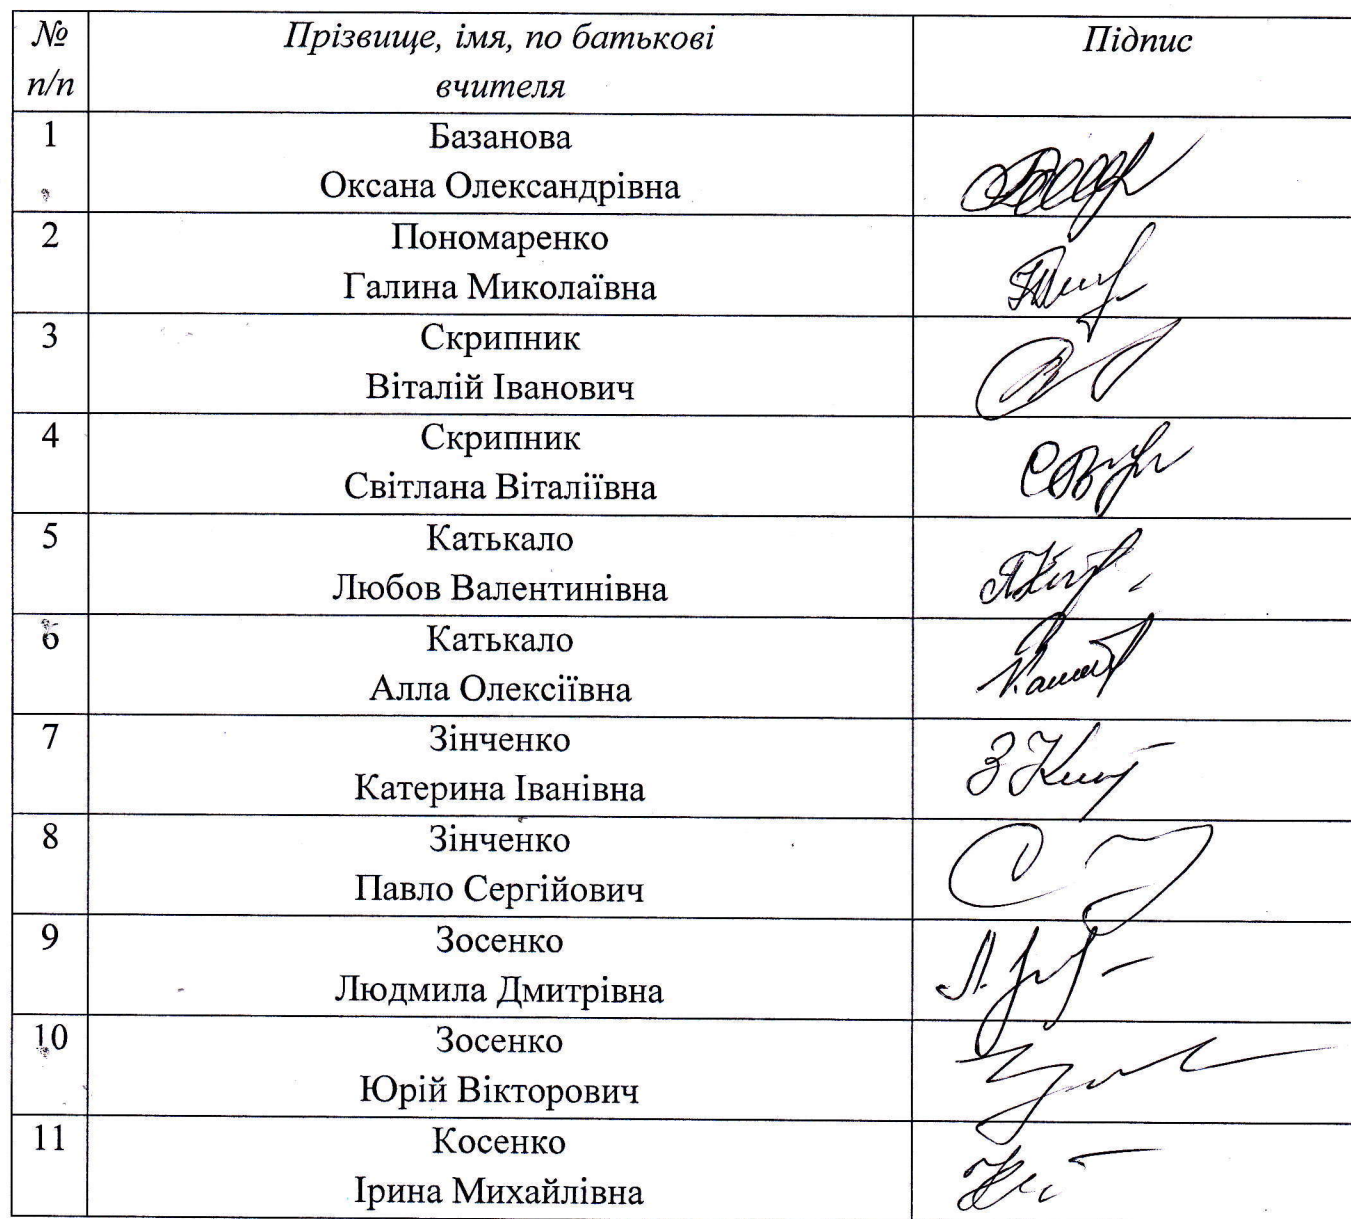 № Прізвище, імя, по батькові Підпис
п/п вчителя
1 Базанова
Оксана Олександрівна
2 Пономаренко
Галина Миколаївна
3 Скрипник
Віталій Іванович
4 Скрипник
Світлана Віталіївна
5 Катькало
Любов Валентинівна
6 Катькало
Алла Олексіївна
7 Зінченко
Катерина Іванівна
8 Зінченко
Павло Сергійович
9 Зосенко
Людмила Дмитрівна
10 Зосенко
Юрій Вікторович
11 Косенко
Ірина Михайлівна